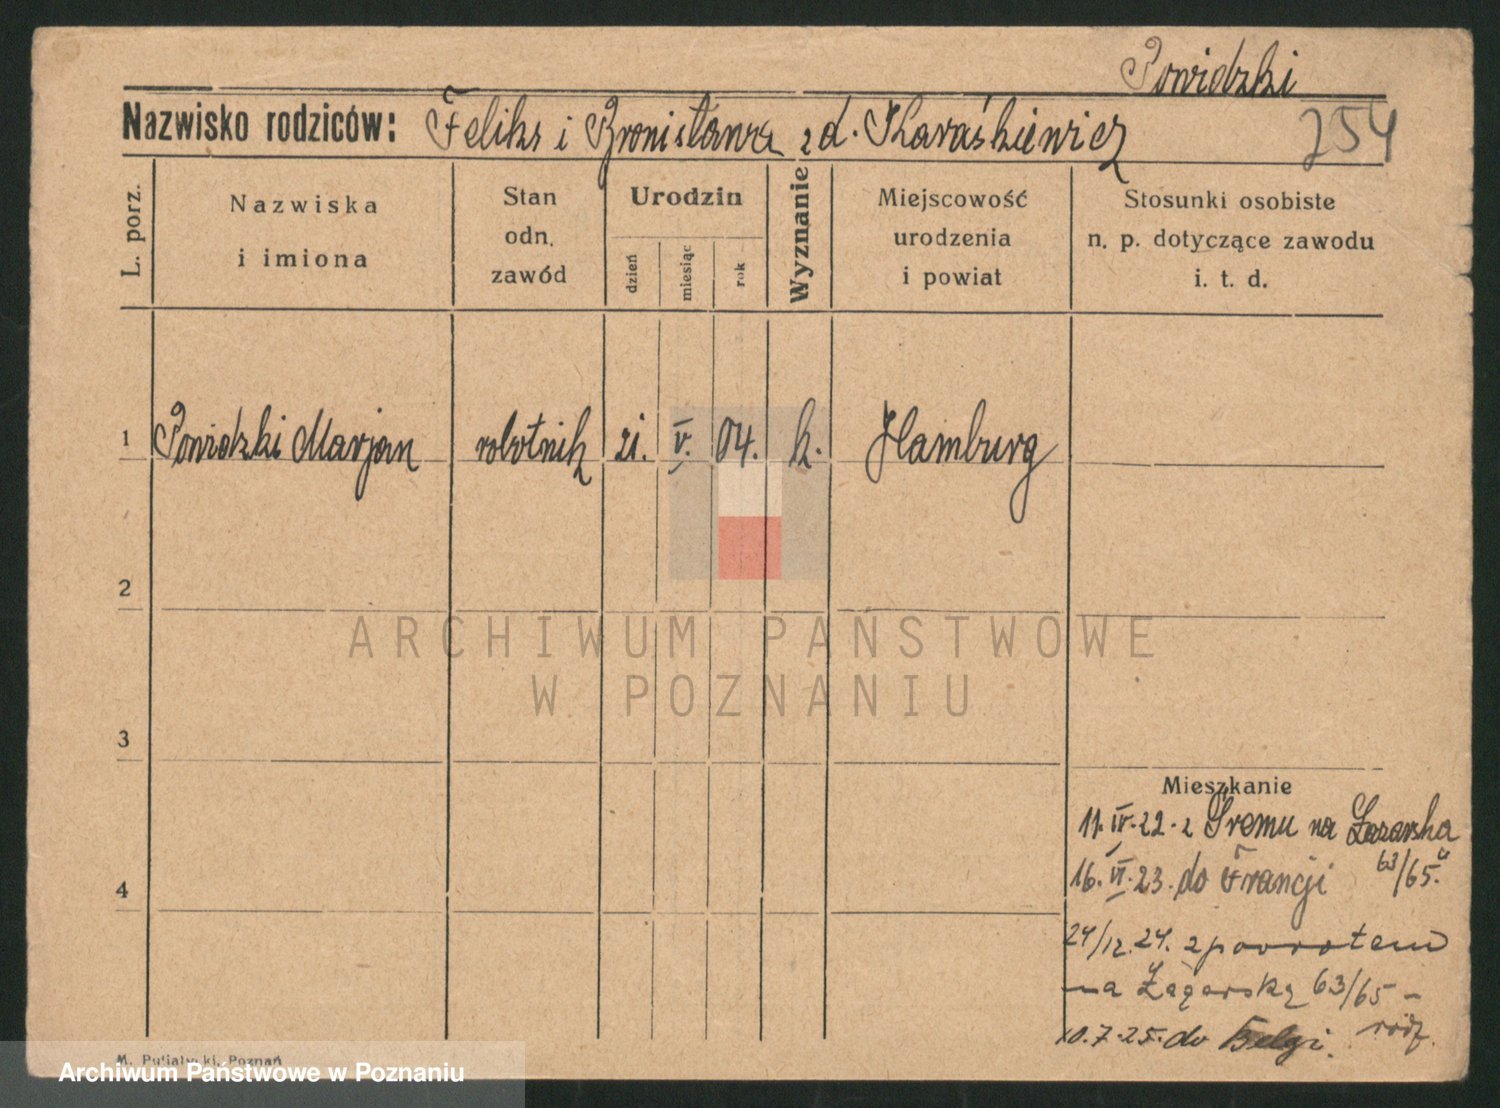 Powidzki
Nazwisko rodziców: Feliks i Bronisława z d. Karaśkiewicz
254
L. porz.
Nazwiska
i imiona
Stan
odn.
zawód
Urodzin
dzień
miesiąc
rok
Wyznanie
Miejscowość
urodzenia
i powiat
Stosunki osobiste
n. p. dotyczące zawodu
i. t. d.
1 Powidzki Marjan robotnik 21. V. 04. k. Hamburg
2
ARCHIWUM PAŃSTWOWE
W POZNANIU
3
Mieszkanie
11. IV. 22. z Śremu na Łazarska
63/65.
16. VI. 23. do Francji
4
24/12. 24. z powrotem
na Łazarską 63/65 -
rodz.
10.7.25. do Belgi.
M. Putiatycki, Poznań
Archiwum Państwowe w Poznaniu